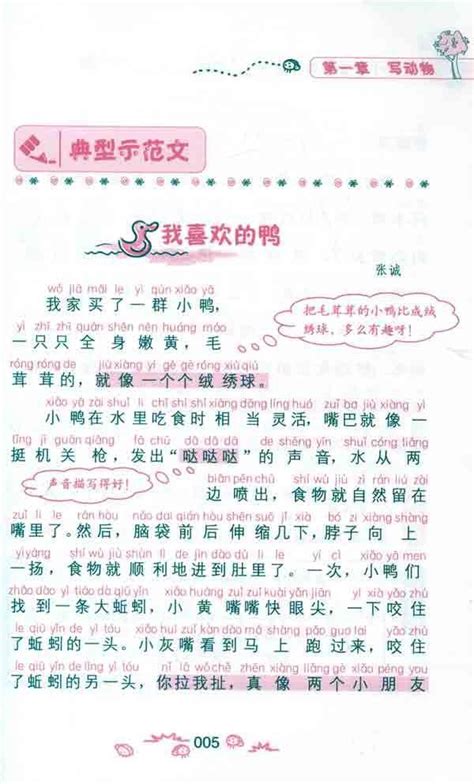 第一章 写动物
典型示范文
我喜欢的鸭
张诚
wǒ jiā mǎi le yì qún xiǎo yā
我家买了一群小鸭，
yì zhī zhī quán shēn nèn huáng máo
一只只全身嫩黄，毛
róng róng de jiù xiàng yí gè gè róng xiù qiú
茸茸的，就像一个个绒绣球。
把毛茸茸的小鸭比成绒
绣球，多么有趣呀！
xiǎo yā zài shuǐ lǐ chī shí shí xiāng dāng líng huó zuǐ ba jiù xiàng yì
小鸭在水里吃食时相当灵活，嘴巴就像一
tǐng jī guān qiāng fā chū dā dā dā de shēng yīn shuǐ cóng liǎng
挺机关枪，发出“哒哒哒”的声音，水从两
声音描写得好！
biān pēn chū shí wù jiù zì rán liú zài
边喷出，食物就自然留在
zuǐ lǐ le rán hòu nǎo dai qián hòu shēn suō jǐ xià bó zi xiàng shàng
嘴里了。然后，脑袋前后伸缩几下，脖子向上
yì yáng shí wù jiù shùn lì de jìn dào dǔ lǐ le yí cì xiǎo yā men
一扬，食物就顺利地进到肚里了。一次，小鸭们
zhǎo dào yì tiáo dà qiū yǐn xiǎo huáng zuǐ zuǐ kuài yǎn jiān yì kǒu yǎo zhù
找到一条大蚯蚓，小黄嘴嘴快眼尖，一下咬住
le qiū yǐn de yì tóu xiǎo huī zuǐ kàn dào mǎ shàng pǎo guo lai yǎo zhù
了蚯蚓的一头。小灰嘴看到马上跑过来，咬住
le qiū yǐn de lìng yì tóu nǐ lā wǒ chě zhēn xiàng liǎng gè xiǎo péng you
了蚯蚓的另一头，你拉我扯，真像两个小朋友
005